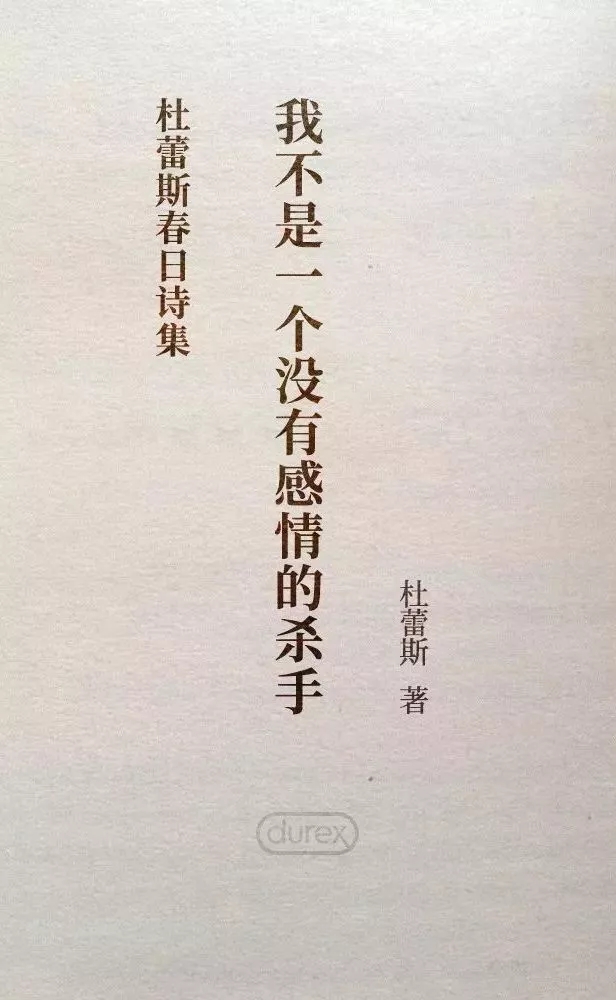 杜蕾斯春日诗集
我不是一个没有感情的杀手
杜蕾斯 著
durex